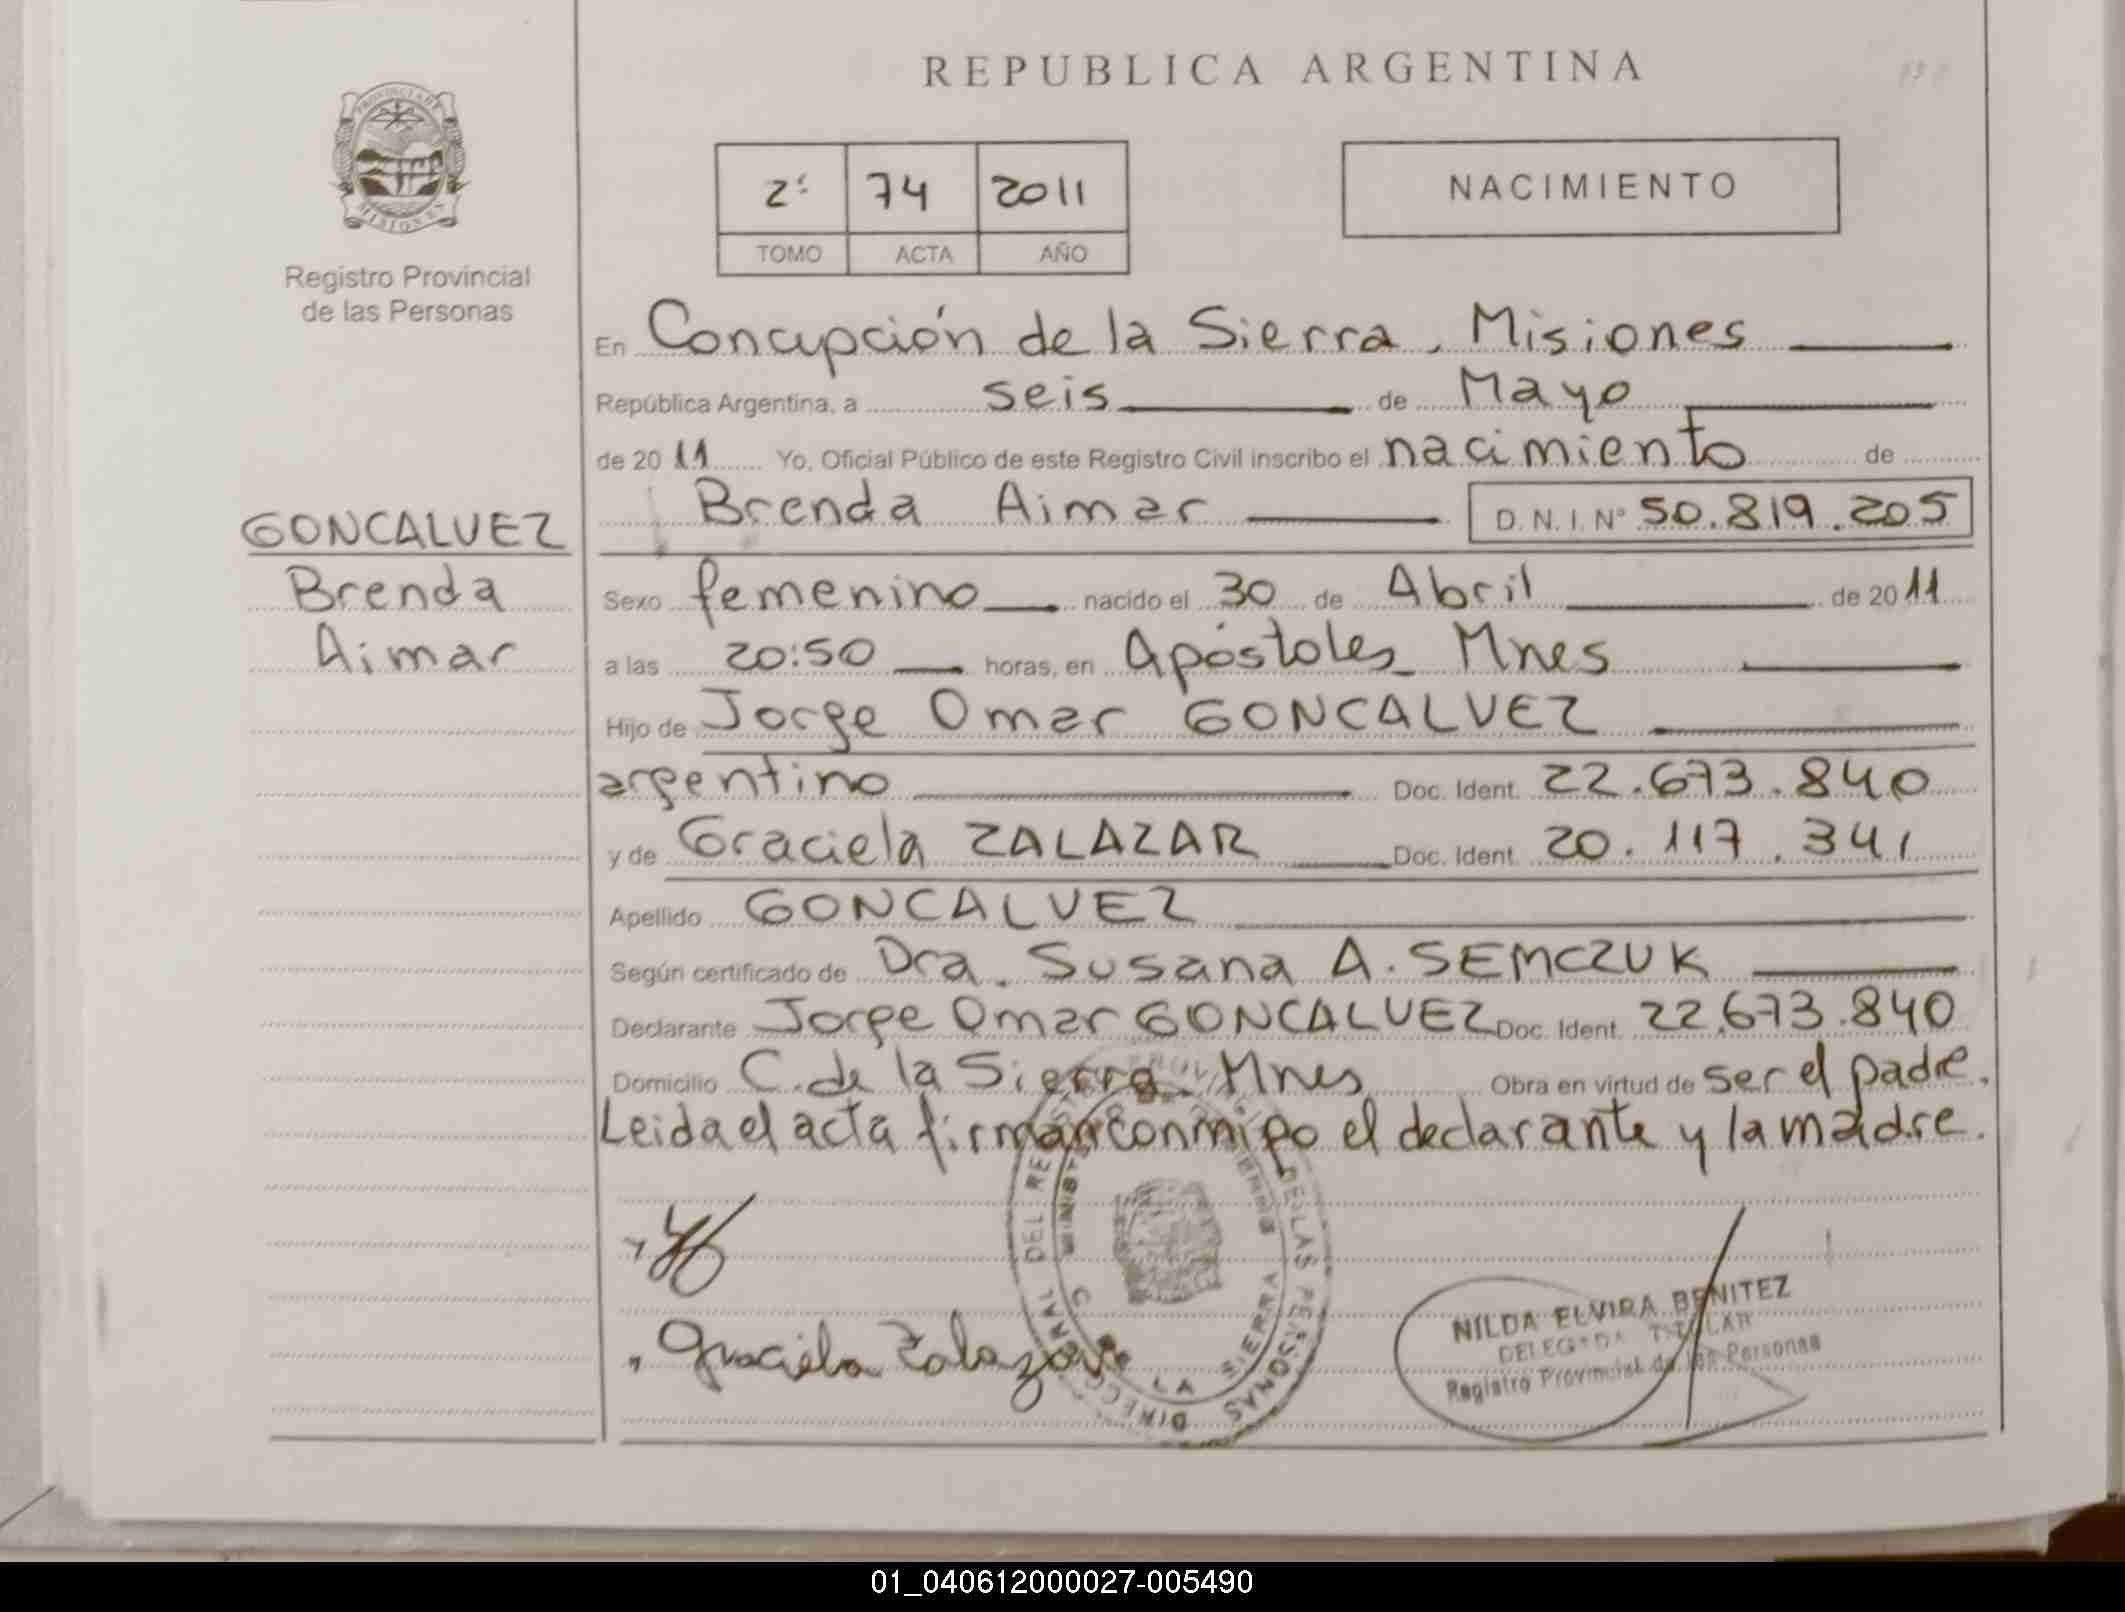 REPUBLICA ARGENTINA
PROVINCIA DE
MISIONES
Registro Provincial
de las Personas
2º 74 2011
TOMO ACTA AÑO
NACIMIENTO
En Concepción de la Sierra, Misiones
República Argentina, a seis de Mayo
de 2011 Yo, Oficial Público de este Registro Civil inscribo el nacimiento de
Brenda Aimar D.N.I. Nº 50.819.205
GONCALVEZ
Brenda
Aimar
Sexo femenino nacido el 30 de Abril de 2011
a las 20:50 horas, en Apóstoles Mnes
Hijo de Jorge Omar GONCALVEZ
argentino Doc. Ident. 22.673.840
y de Graciela ZALAZAR Doc. Ident. 20.117.341
Apellido GONCALVEZ
Según certificado de Dra. Susana A. SEMCZUK
Declarante Jorge Omar GONCALVEZ Doc. Ident. 22.673.840
Domicilio C. de la Sierra Mnes Obra en virtud de ser el padre.
Leida el acta firman conmigo el declarante y la madre.
Graciela Zalazar
DEL RE DE LAS PERSONAS
LA SIERRA
NILDA ELVIRA BENITEZ
DELEGADA TITULAR
Registro Provincial de las Personas
01_040612000027-005490